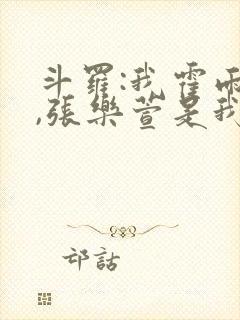 斗羅:我霍雨
,張樂萱是我
邙話